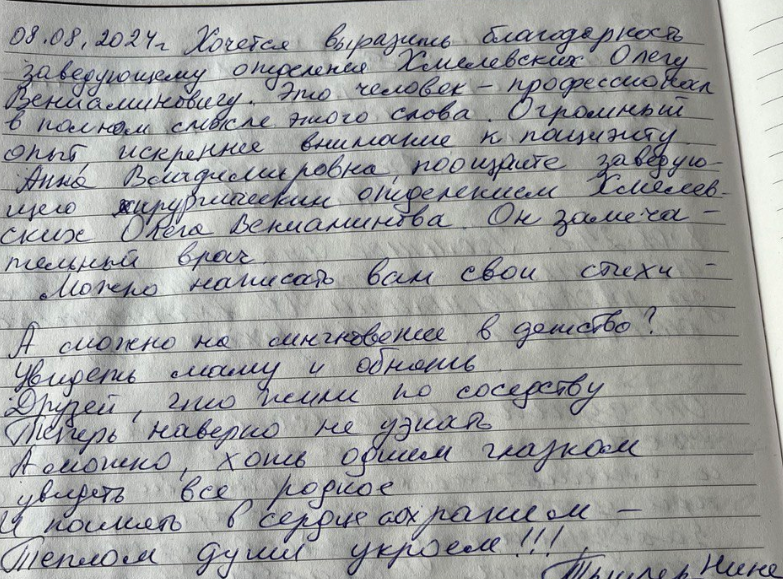 08.08.2024г Хочется выразить благодарность
заведующему отделения Хмелевских Олегу
Вениаминовичу. Это человек – профессионал
в полном смысле этого слова. Огромный
опыт, искреннее внимание к пациенту
Анна Владимировна, поощрите заведую-
щего хирургическим отделением Хмелев-
ских Олега Вениаминова. Он замеча-
тельный врач.
Можно написать вам свои стихи –
А можно на мнгновенье в детство?
Увидеть маму и обнять
Друзей, что жили по соседству
Теперь наверно не узнать
А можно, хоть одним глазком
увидеть все родное
И память в сердце сохраним –
Теплом души укроем!!!
Нине